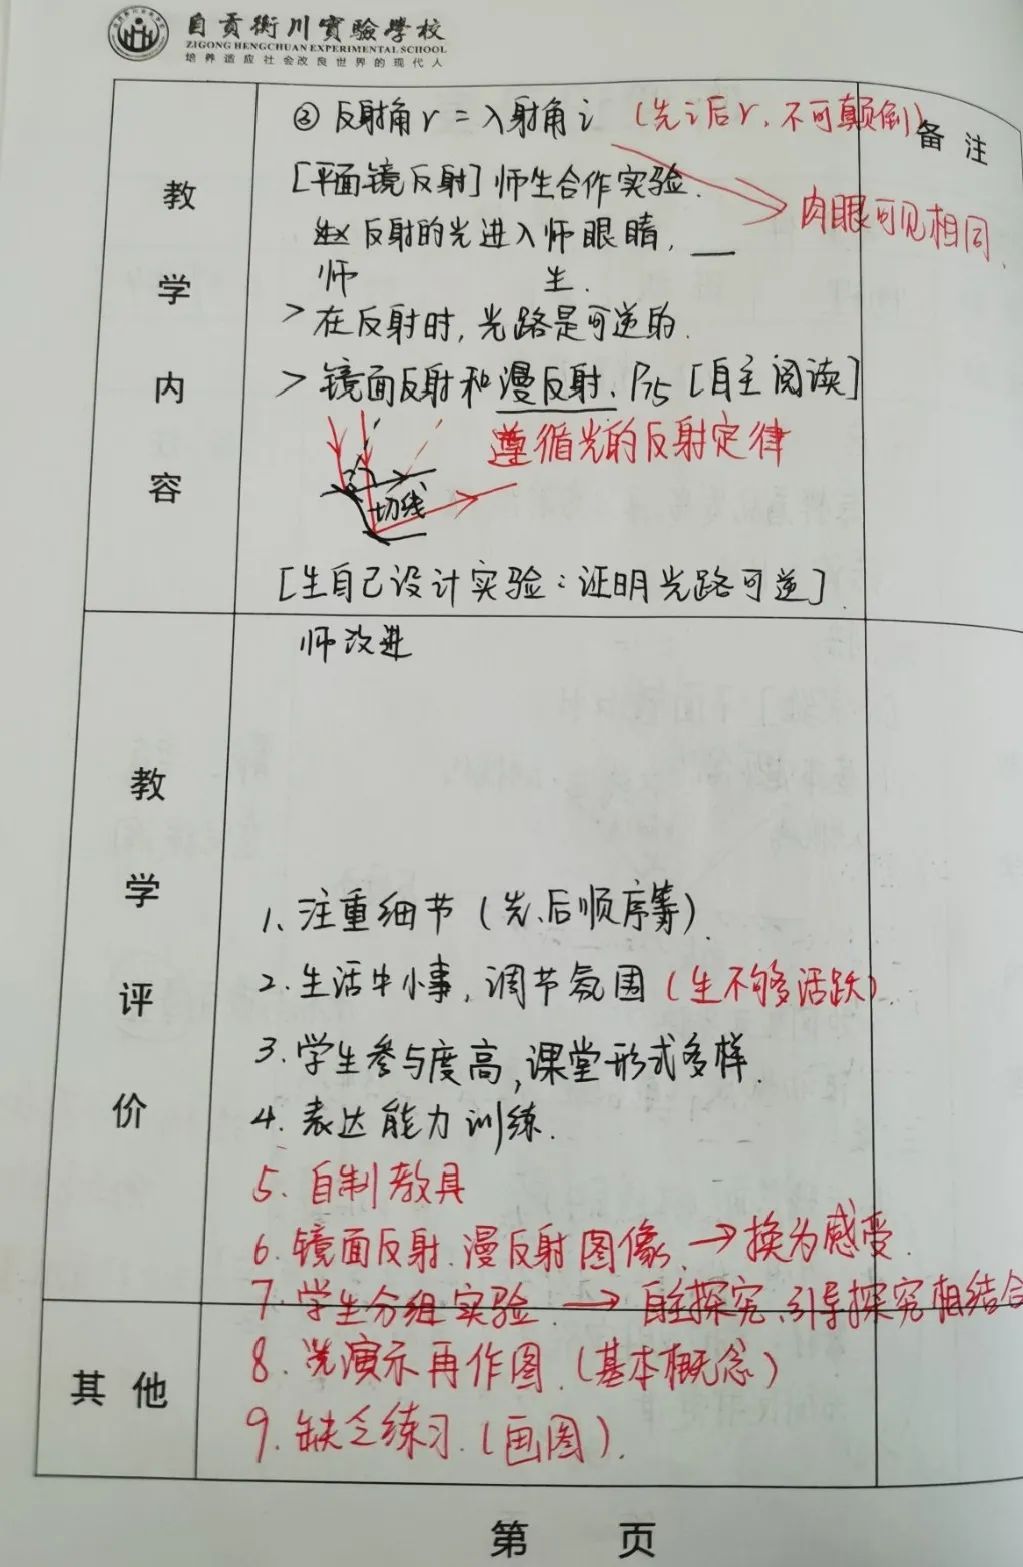 自贡衡川實驗學校
ZIGONG HENGCHUAN EXPERIMENTAL SCHOOL
培养适应社会改良世界的现代人
备注
教学内容
③ 反射角r=入射角i (先i后r,不可颠倒)
[平面镜反射]师生合作实验.
肉眼可见相同.
反射的光进入师眼睛,
师 生.
>在反射时,光路是可逆的.
>镜面反射和漫反射. P75 [自主阅读]
遵循光的反射定律
切线
[生自己设计实验:证明光路可逆].
师改进
教学评价
1、注重细节(先、后顺序等).
2.生活中小事,调节氛围(生不够活跃).
3.学生参与度高,课堂形式多样.
4.表达能力训练.
5.自制教具
6.镜面反射.漫反射图像.→换为感受.
7.学生分组实验.→自主探究、引导探究相结合
其他
8.先演示再作图.(基本概念)
9.缺乏练习.(画图).
第 页